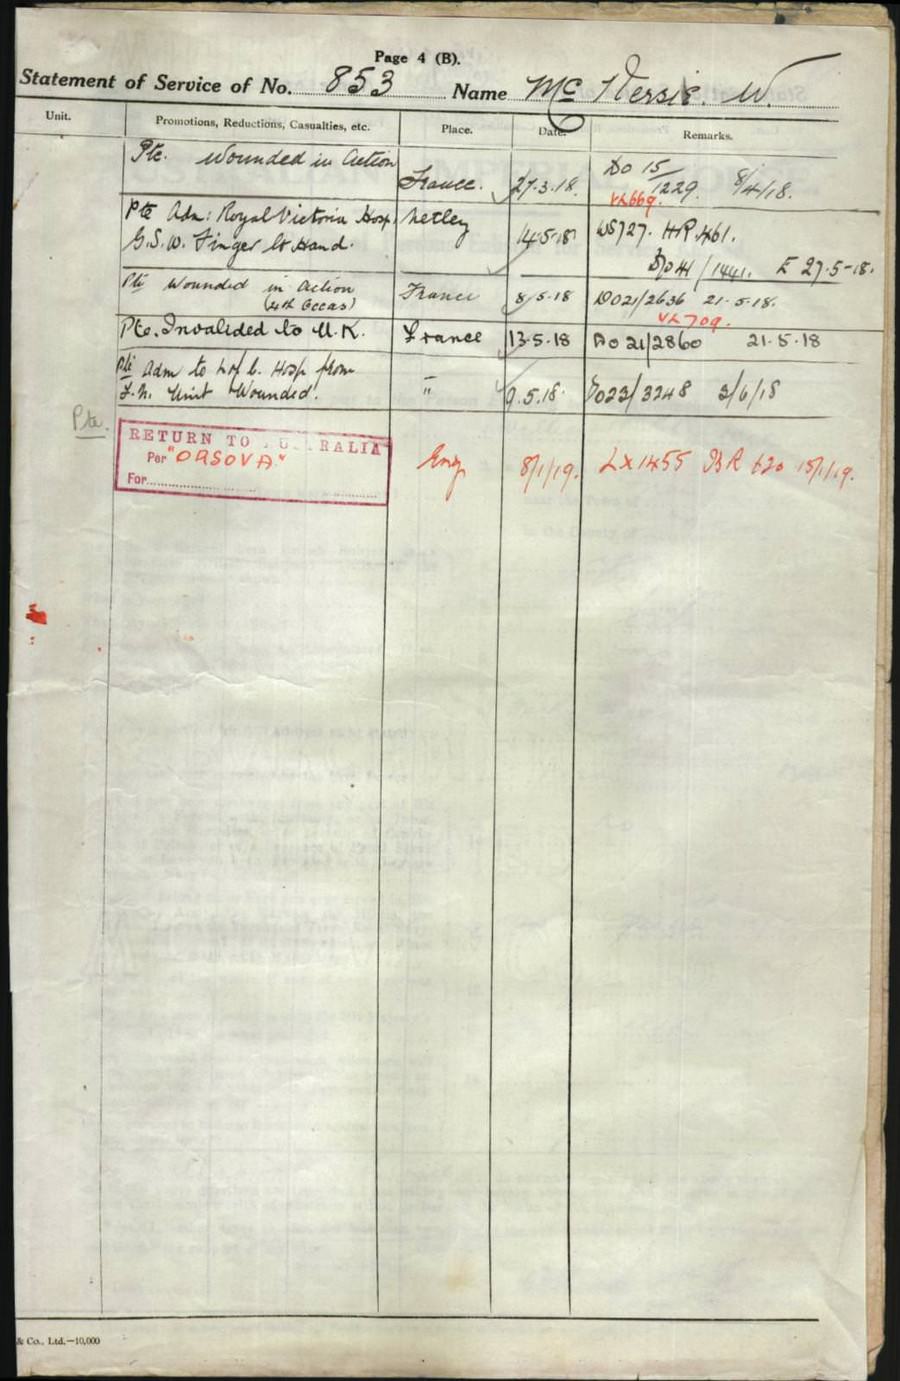 Page 4 (B).
Statement of Service of No. 853 Name Mc W.
Unit. Promotions, Reductions, Casualties, etc. Place. Date. Remarks.
Pte. Wounded in Action France. 27.3.18. DO 15/1229. 8/4/18.
VL669.
Pte Adm: Royal Victoria Hosp. Netley 14.5.18 WS727. HR 461.
G.S.W. Finger Lt Hand.
/1441. E 27-5-18.
Pte Wounded in Action France 8/5.18 DO21/2636 21.5.18.
(4th Occas) VL709.
Pte. Invalided to U.K. France 13.5.18 DO 21/2860 21.5.18
Pte Adm to Hosp from
Unit Wounded. " 9.5.18. DO23/3248 3/6/18
Pte.
RETURN TO AUSTRALIA
Per "ORSOVA." Eng 8/1/19. LX1455 BR 620 15/1/19.
For
& Co., Ltd.—10,000